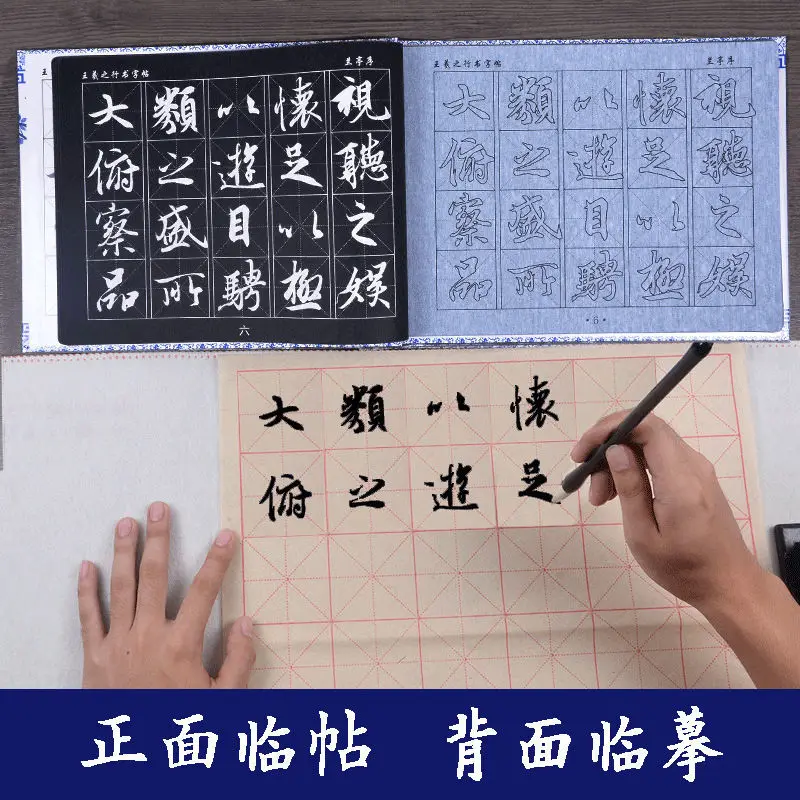 王羲之行书字帖
兰亭序
大俯察品
類之盛所
以遊目騁
懷足以極
視聽之娛
六
王羲之行书字帖
兰亭序
大俯察品
類之盛所
以遊目騁
懷足以極
視聽之娛
·6·
大俯
類之
以遊
懷足
正面临帖 背面临摹